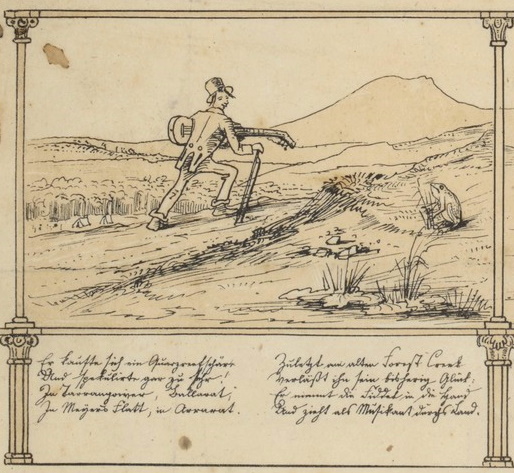 Er kaufte sich ein Quarzreefschäre
Und spekulirte gar zu sehr,
In Tarrangower, Ballarat,
In Meyers Flatt, in Arrarat.
Zuletzt am alten Forest Creek
Verläßt ihn sein bisherig Glück;
Er nimmt die Fiedel in die Hand
Und zieht als Musikant durchs Land.